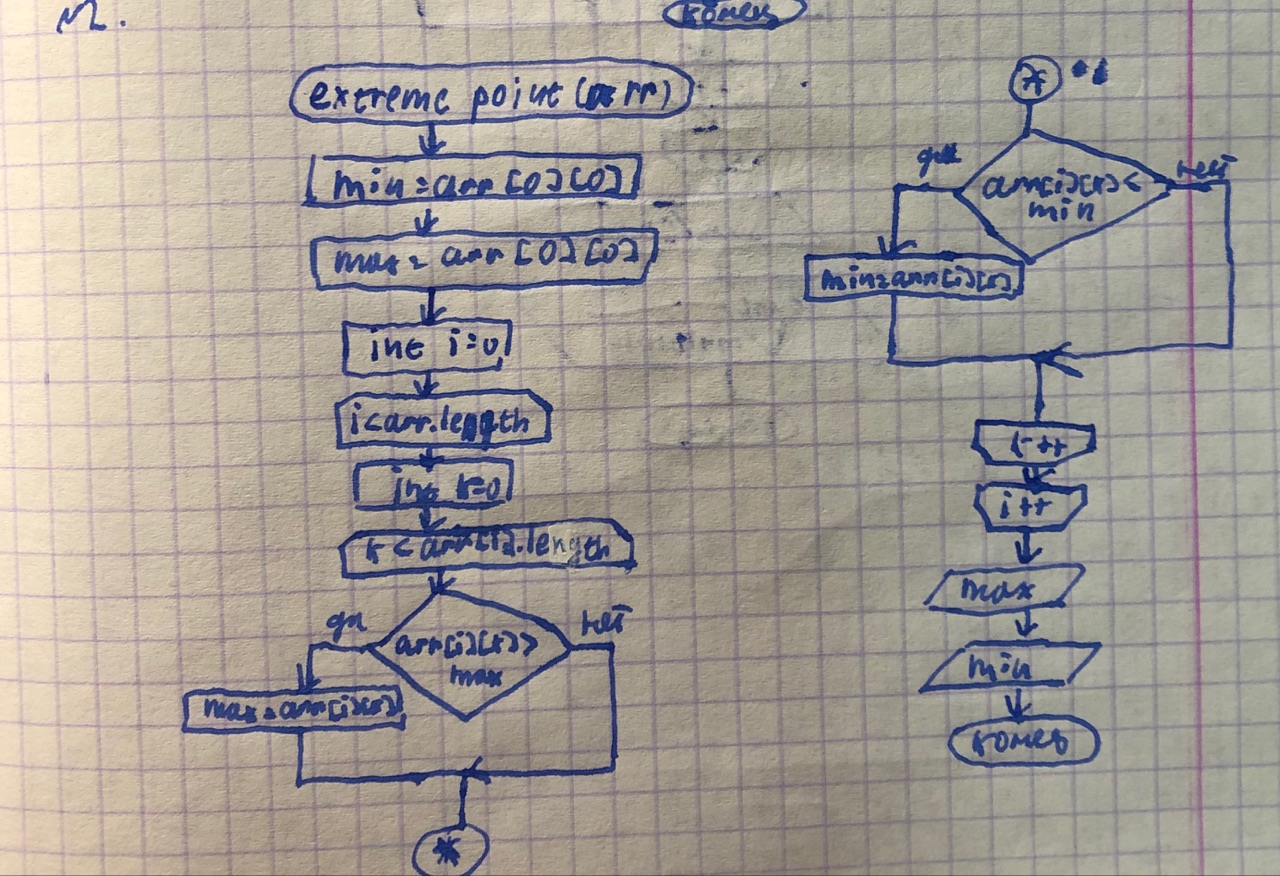 M.
конец
extreme point (arr)
min = arr[0][0]
max = arr[0][0]
int i=0
i<arr.length
int k=0
k<arr[i].length
да
нет
arr[i][k]>
max
max=arr[i][k]
*
*
да
нет
arr[i][k]<
min
min=arr[i][k]
k++
i++
max
min
конец